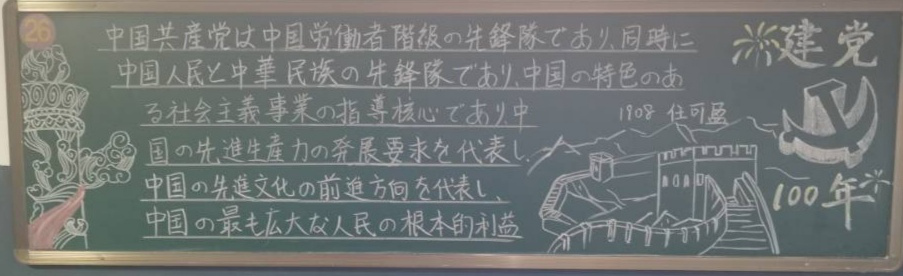 26
中国共産党は中国労働者階級の先鋒隊であり、同時に
中国人民と中華民族の先鋒隊であり、中国の特色のあ
る社会主義事業の指導核心であり中
国の先進生産力の発展要求を代表し
中国の先進文化の前进方向を代表し
中国の最も広大な人民の根本的利益
1908 任可盈
建党
100年